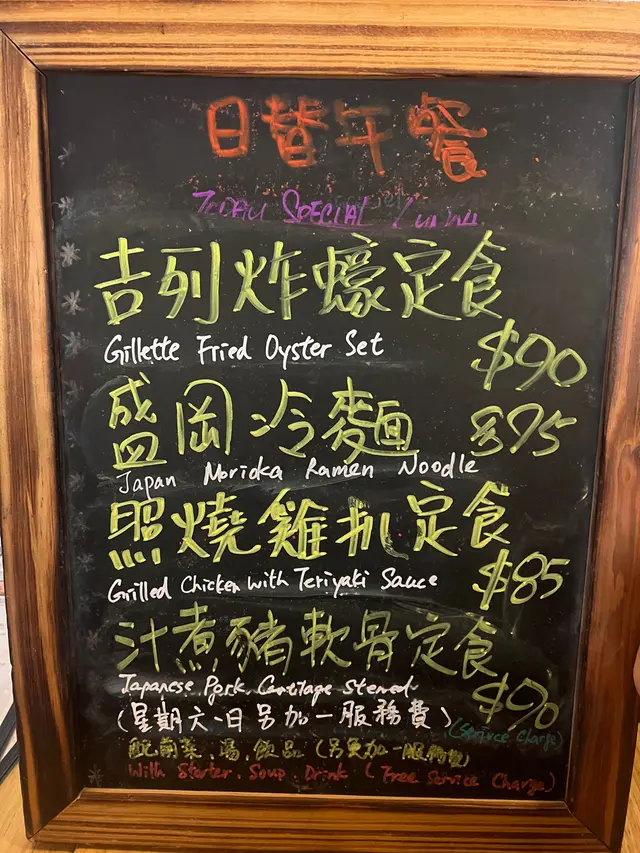 日替午餐
TODAY SPECIAL Lunch
吉列炸蠔定食
Gillette Fried Oyster Set
$90
盛岡冷麵 $95
Japan Morioka Ramen Noodle
照燒雞扒定食
Grilled Chicken with Teriyaki Sauce
$85
汁煮豬軟骨定食
Japanese Pork Cartilage Stewed
$90
(星期六、日另加一服務費)
(Service Charge)
配前菜、湯、飲品 (另免加一服務費)
With Starter, Soup, Drink (Free Service Charge)